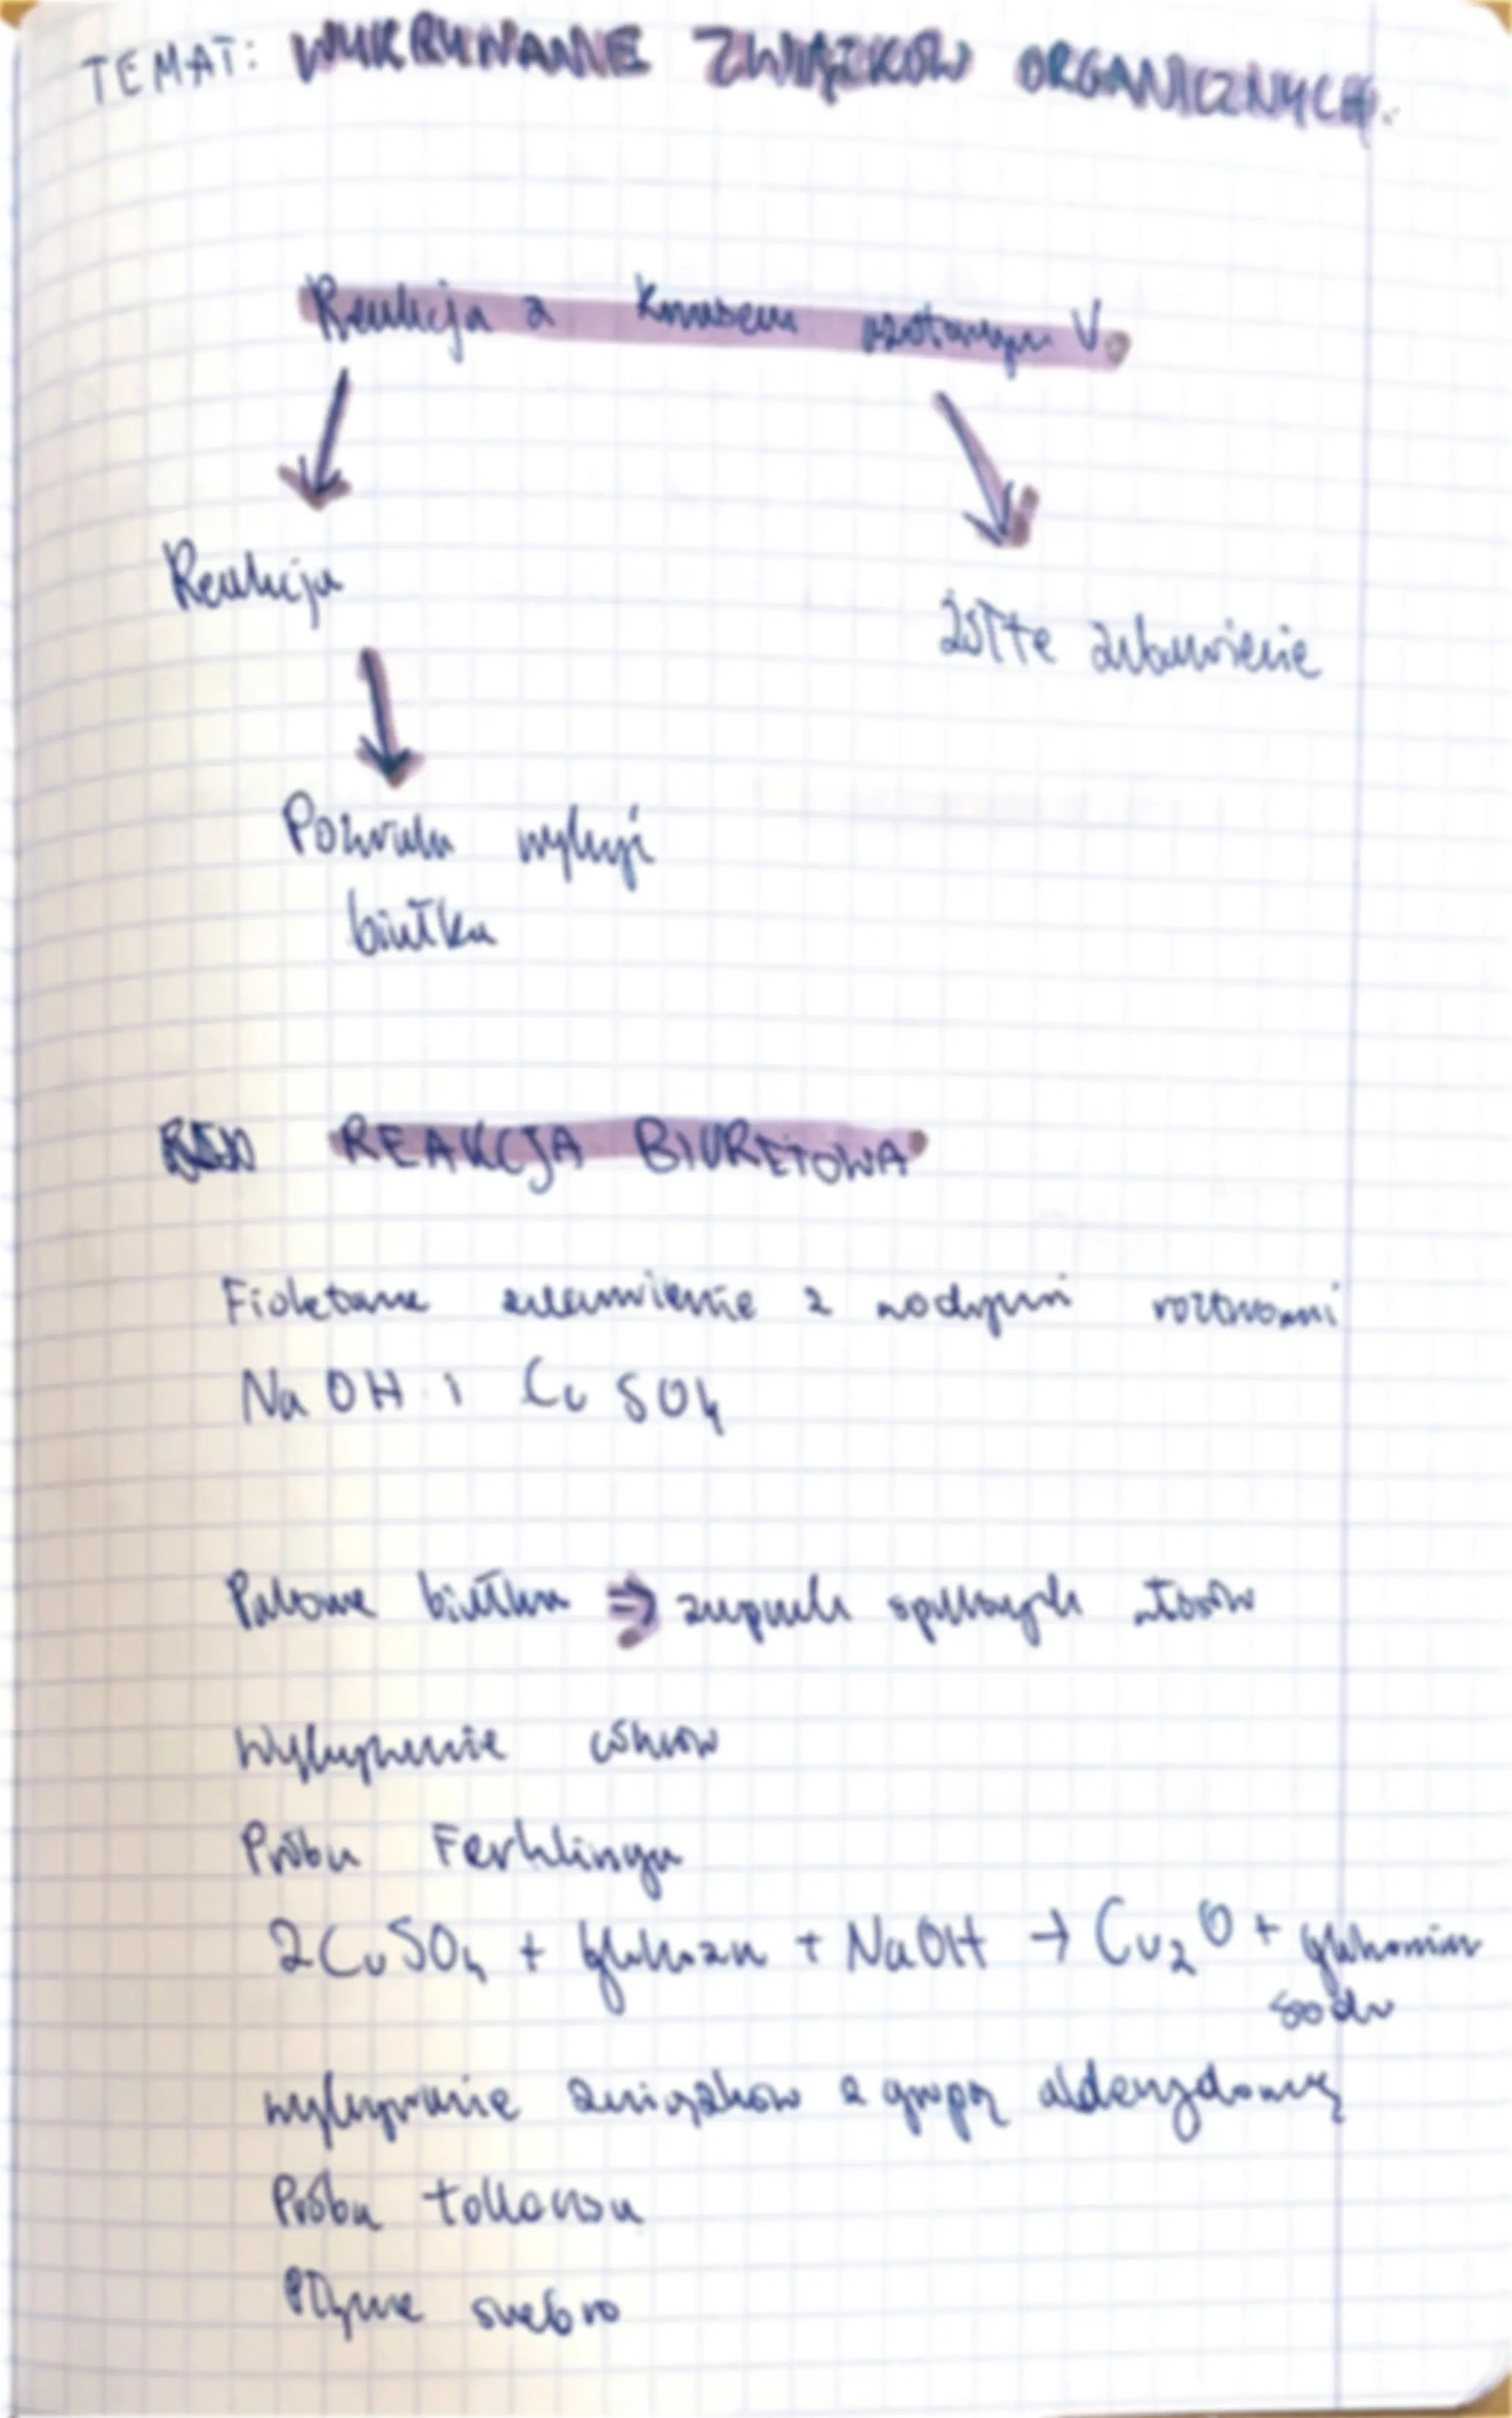 TEMAT: WYKRYWANIE ZWIĄZKÓW ORGANICZNYCH.
Reakcja z kwasem azotowym V.
Reakcja
Żółte zabarwienie
Pozwala wykryć
białka
REAKCJA BIURETOWA
Fioletowe zabarwienie z wodnymi roztworami
NaOH i CuSO4
Palone białka => zapach spalonych włosów
Wykrywanie cukrów
Próba Ferhlinga
2CuSO4 + glukoza + NaOH → Cu2O + glukonian
sodu
wykrywanie związków z grupą aldehydową
Próba tollensa
Płynne srebro